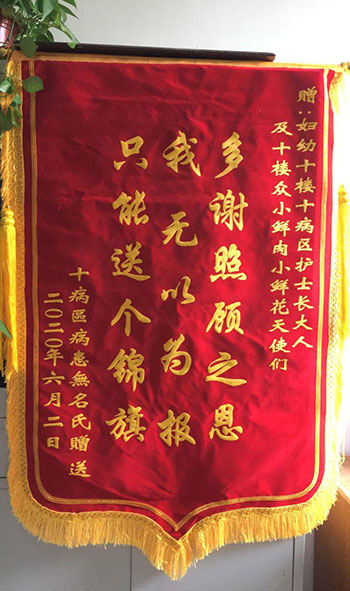 赠:妇幼十楼十病区护士长大人
及十楼众小鲜肉小鲜花天使们
多谢照顾之恩
我无以为报
只能送个锦旗
十病區病患無名氏贈送
二〇二〇年六月二日